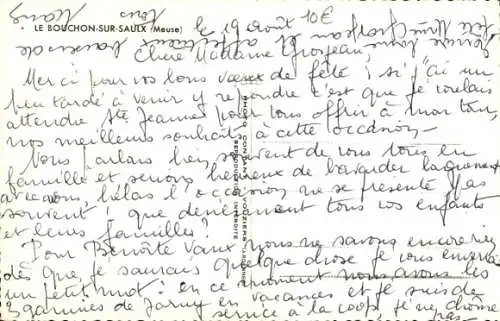 LE BOUCHON-SUR-SAULX (Meuse)
le 19 août
10€
Chère Madame Grosjean,
Merci pour vos bons vœux de fête ; si j'ai un
peu tardé à venir y répondre c'est que je voulais
attendre Ste Jeanne pour vous offrir à mon tour,
nos meilleurs souhaits à cette occasion -
Nous parlons bien souvent de vous tous en
famille et serions heureux de bavarder
avec vous, hélas l'occasion ne se présente pas
souvent ! que deviennent tous vos enfants
et leurs familles ?
Pour Benoîte Vaux, nous ne savons encore rien
dès que je saurais quelque chose je vous enverrai
un petit mot : en ce moment nous avons les
3 gamines de Jarny en vacances et je suis de
service à la coop je ne chôme
pas -
PHOTO COMBIER
REPRODUCTION INTERDITE